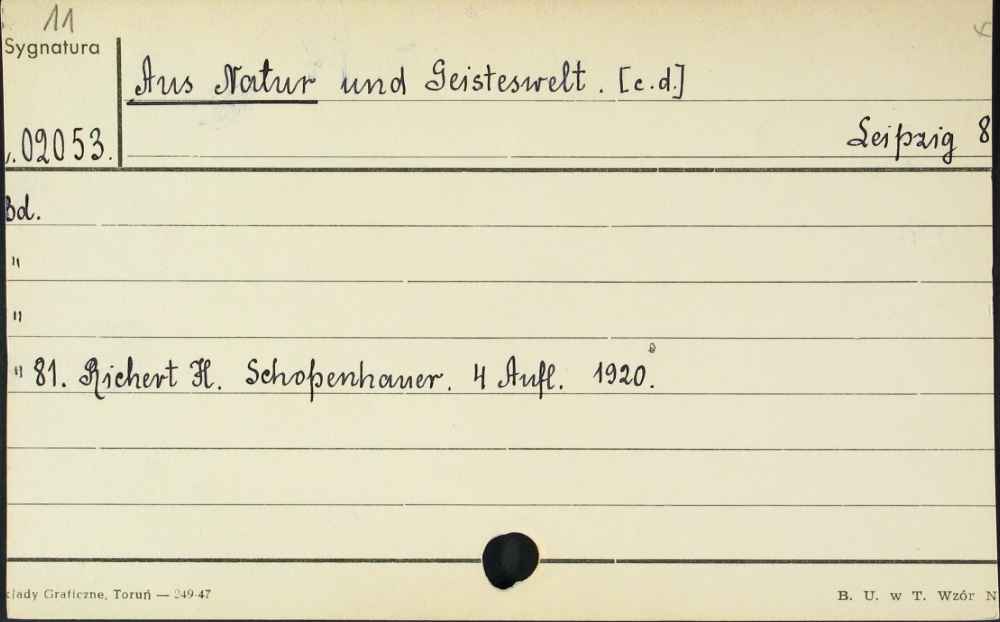 11
Sygnatura
Aus Natur und Geisteswelt. [c.d.]
02053.
Leipzig 8
Bd.
"
"
" 81. Richert H. Schopenhauer. 4 Aufl. 1920.
Graficzne, Toruń — 249-47
B. U. w T. Wzór N